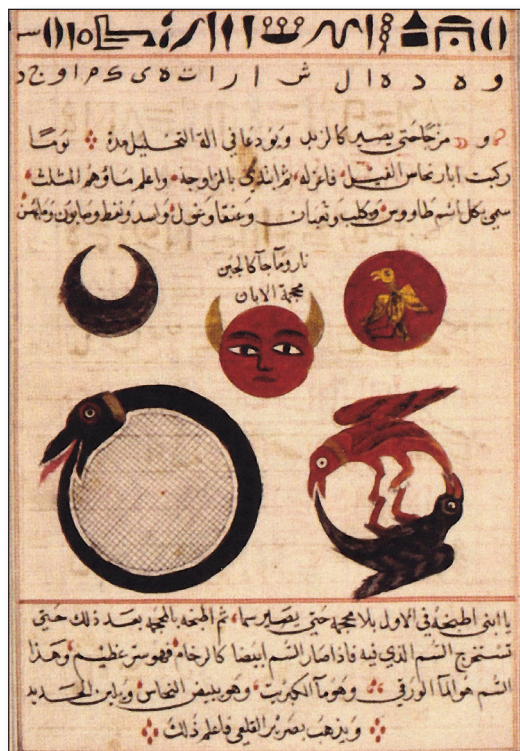 و ه د ه ا ل ش ا ر ا ت ه ى ك م ا و ج د
و مزجا حتى يصير كالزبد ويودعا فى الة التحليل مدة يوما
ركبت ابار نحاس الفيل فاعزله ثم ابتدى بالمزاوجة واعلم ماؤهم المثلث
سمى بكل اسم طاووس وكلب وثعبان وعنقا وغول واسد ونفط وصابون
نار وما جآ كالجبن
محجمة الابان
يا ابنى اطبخه فى الاول بلا محجمه حتى يصير سما ثم اطبخه بالمحجمه بعد ذلك حتى
تستخرج السم الذي فيه فاذا صار السم ابيضا كالرخام فهو سر عظيم وهذا
السم هو المآ الورقي وهو مآ الكبريت وهو يبيض النحاس ويلين الحديد
ويذهب بصرير القلعى فاعلم ذلك